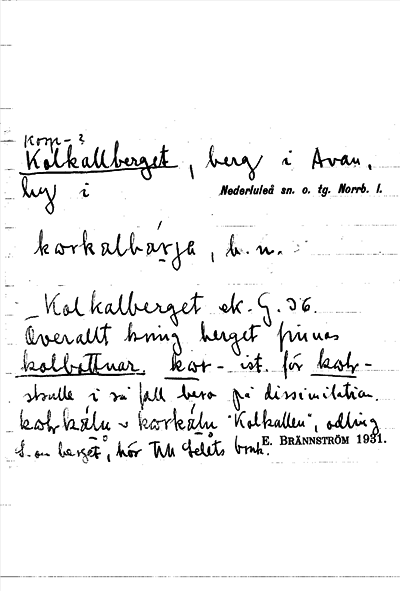 Korp-?
Kolkallberget, berg i Avan,
by i Nederluleå sn. o. tg. Norrb. l.
kørkalbárja, b. n.
Kolkalberget ek. G. 36.
Överallt kring berget finnas
kolbottnar. kør- ist. för køl-
skulle i så fall bero på dissimilation.
kølkálu ~ kørkálu "Kolkallen", odling
S. om berget, hör till Gelets bruk.
E. BRÄNNSTRÖM 1931.